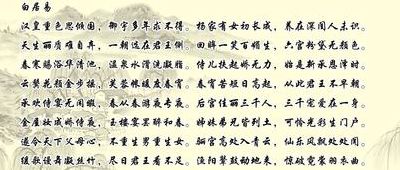 白居易
汉皇重色思倾国，御宇多年求不得。杨家有女初长成，养在深闺人未识。
天生丽质难自弃，一朝选在君王侧。回眸一笑百媚生，六宫粉黛无颜色。
春寒赐浴华清池，温泉水滑洗凝脂。侍儿扶起娇无力，始是新承恩泽时。
云鬓花颜金步摇，芙蓉帐暖度春宵。春宵苦短日高起，从此君王不早朝。
承欢侍宴无闲暇，春从春游夜专夜。后宫佳丽三千人，三千宠爱在一身。
金屋妆成娇侍夜，玉楼宴罢醉和春。姊妹弟兄皆列土，可怜光彩生门户。
遂令天下父母心，不重生男重生女。骊宫高处入青云，仙乐风飘处处闻。
缓歌慢舞凝丝竹，尽日君王看不足。渔阳鼙鼓动地来，惊破霓裳羽衣曲。